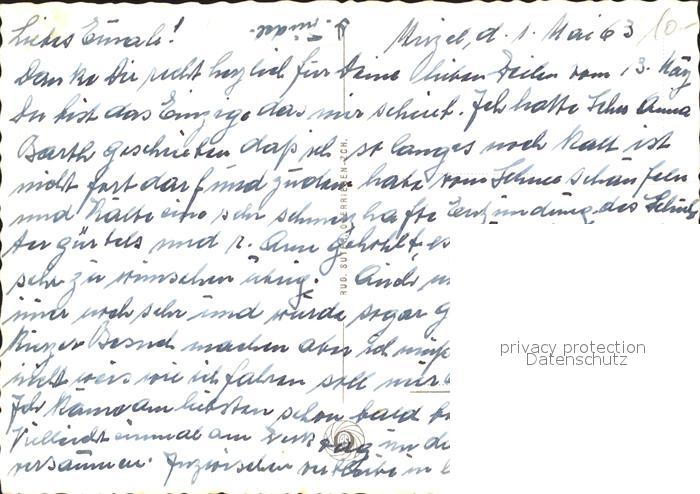 Liebes Eineli!
d. 1. Mai 63
Danke Dir recht herzlich für Deine lieben Zeilen vom 13. März
Du bist das Einzige das mir schrieb. Ich hatte schon Anna
Barth geschrieben daß ich so lange es noch kalt ist
nicht fort darf und zudem habe vom Schnee schaufeln
und Kälte eine sehr schmerzhafte Entzündung des Schul
tergürtels und r. Arm geholt, es
sehr zu wünschen übrig. Auch
imer noch sehr und würde sogar
kurzen Besuch machen aber ich
nicht weis wie ich fahren soll mir
Ich käme am liebsten schon bald
Vielleicht einmal am Werktag um
versäumen. Inzwischen verbleibe in
RUD. SUTER, OBERRIEDEN-ZCH.
privacy protection
Datenschutz